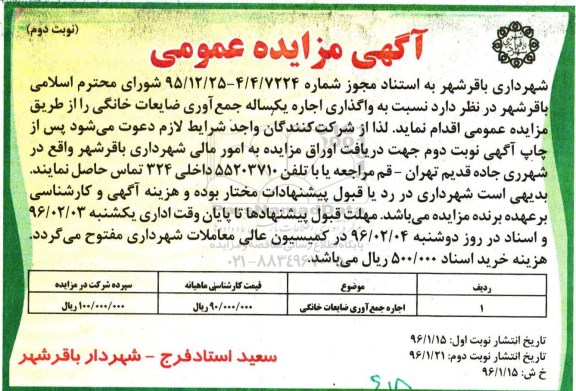 (نوبت دوم)
آگهی مزایده عمومی
شهرداری باقرشهر به استناد مجوز شماره ۴/۴/۷۲۲۴-۹۵/۱۲/۲۵ شورای محترم اسلامی
باقرشهر در نظر دارد نسبت به واگذاری اجاره یکساله جمع‌آوری ضایعات خانگی را از طریق
مزایده عمومی اقدام نماید. لذا از شرکت‌کنندگان واجد شرایط لازم دعوت می‌شود پس از
چاپ آگهی نوبت دوم جهت دریافت اوراق مزایده به امور مالی شهرداری باقرشهر واقع در
شهرری جاده قدیم تهران - قم مراجعه یا با تلفن ۵۵۲۰۳۷۱۰ داخلی ۳۲۴ تماس حاصل نمایند.
بدیهی است شهرداری در رد یا قبول پیشنهادات مختار بوده و هزینه آگهی و کارشناسی
برعهده برنده مزایده می‌باشد. مهلت قبول پیشنهادها تا پایان وقت اداری یکشنبه ۹۶/۰۲/۰۳
و اسناد در روز دوشنبه ۹۶/۰۲/۰۴ در کمیسیون عالی معاملات شهرداری مفتوح می‌گردد.
هزینه خرید اسناد ۵۰۰/۰۰۰ ریال می‌باشد.
ردیف موضوع قیمت کارشناسی ماهیانه سپرده شرکت در مزایده
۱ اجاره جمع‌آوری ضایعات خانگی ۹۰/۰۰۰/۰۰۰ ریال ۱۰۰/۰۰۰/۰۰۰ ریال
تاریخ انتشار نوبت اول: ۹۶/۱/۱۵
تاریخ انتشار نوبت دوم: ۹۶/۱/۲۱
خ ش: ۹۶/۱/۱۵
سعید استادفرج - شهردار باقرشهر